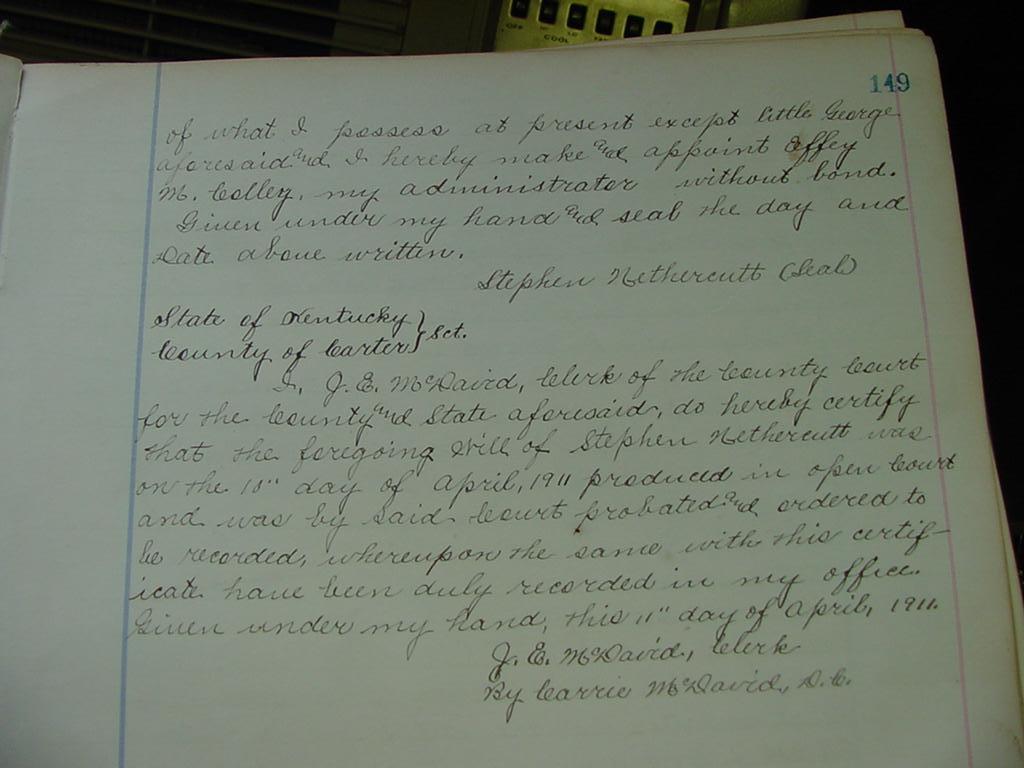 OFF
COOL
149
of what I possess at present except little George
aforesaid and I hereby make and appoint Effey
M. Colley, my administrator without bond.
Given under my hand and seal the day and
Date above written.
Stephen Nethercutt (Seal)
State of Kentucky
County of Carter } Sct.
I, J. E. McDavid, Clerk of the County Court
for the County and State aforesaid, do hereby certify
that the foregoing Will of Stephen Nethercutt was
on the 10" day of April, 1911 produced in open Court
and was by said Court probated and ordered to
be recorded, whereupon the same with this certif-
icate have been duly recorded in my office.
Given under my hand, this 11" day of April, 1911.
J. E. McDavid, Clerk
By Carrie McDavid, D.C.